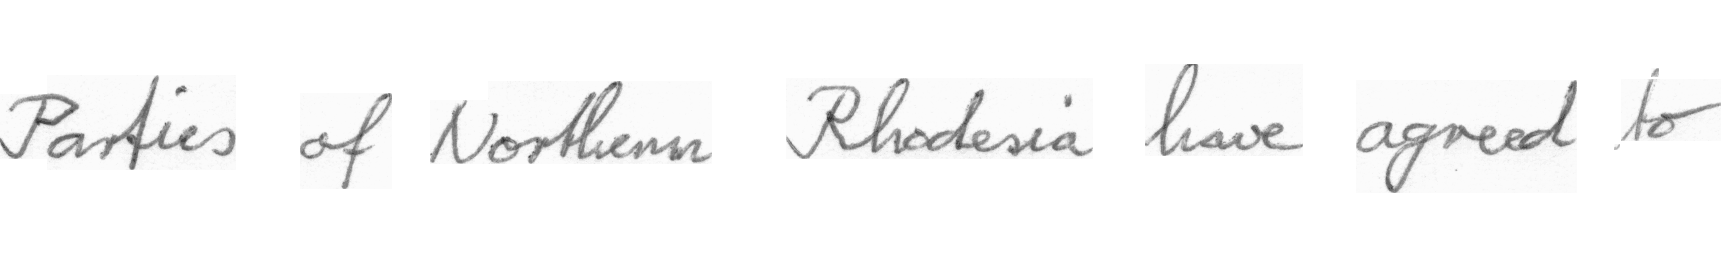 Parties of Northern Rhodesia have agreed to